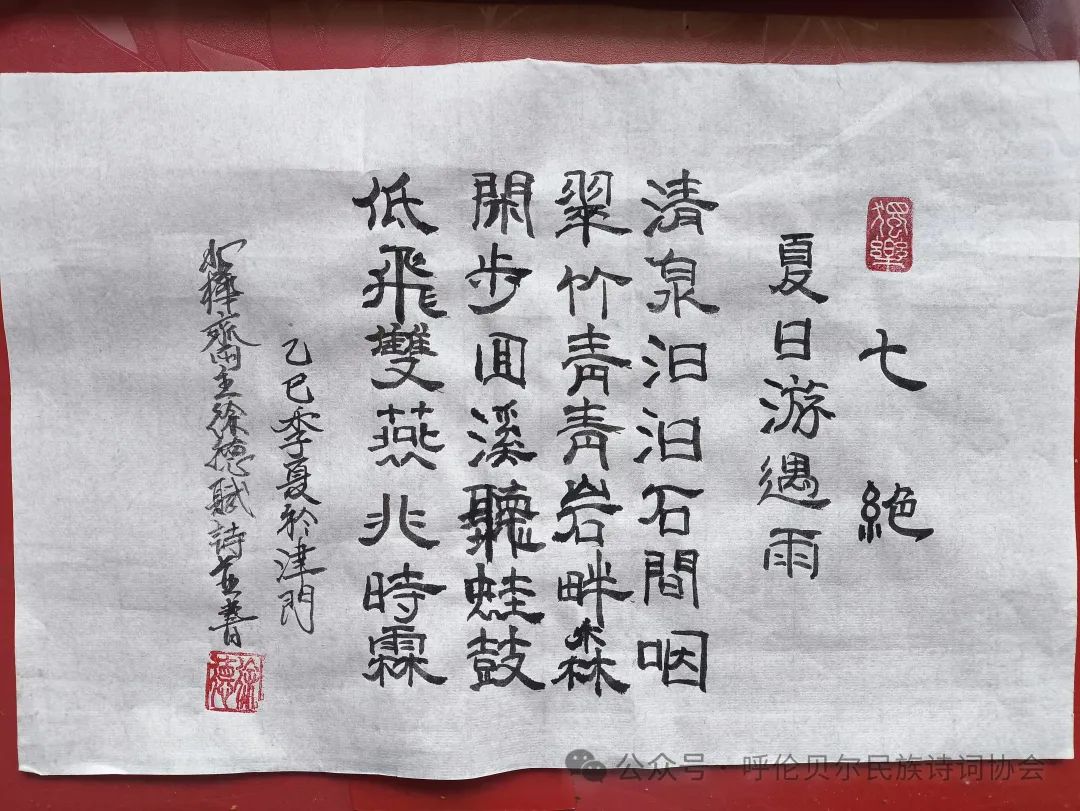 獨樂
七絶
夏日游遇雨
清泉汩汩石間咽
翠竹青青岩畔森
閑步回溪聽蛙鼓
低飛雙燕兆時霖
乙巳季夏於津門
樺齋主徐德賦詩並書
徐德
公众号·呼伦贝尔民族诗词协会